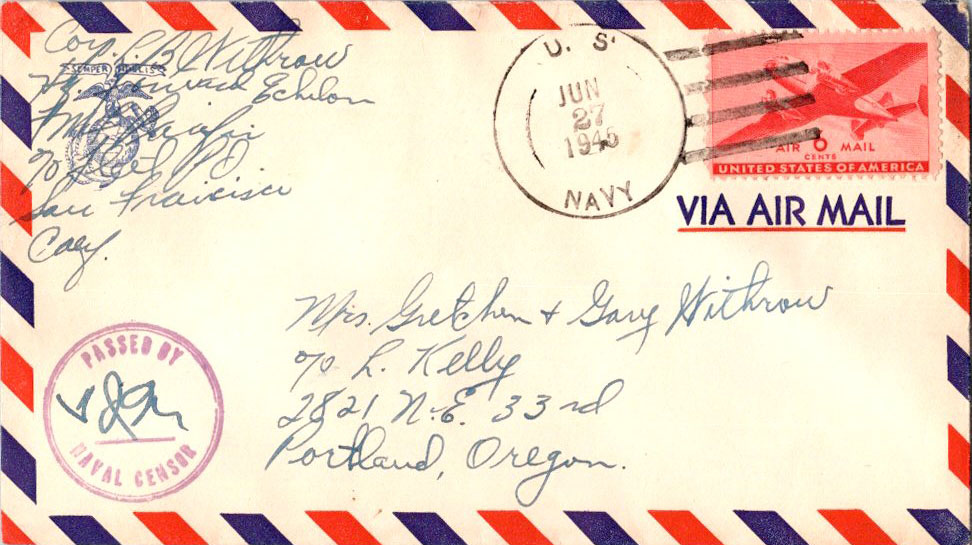 Corp. L B Withrow
SEMPER FIDELIS
Hq. Forward Echelon
FMF Pacific
c/o Fleet P.O.
San Francisco
Calif.
U. S.
JUN
27
1945
NAVY
AIR 6 MAIL
CENTS
UNITED STATES OF AMERICA
VIA AIR MAIL
Mrs. Gretchen + Gary Withrow
c/o L. Kelly
2821 N.E. 33rd
Portland, Oregon.
PASSED BY
NAVAL CENSOR